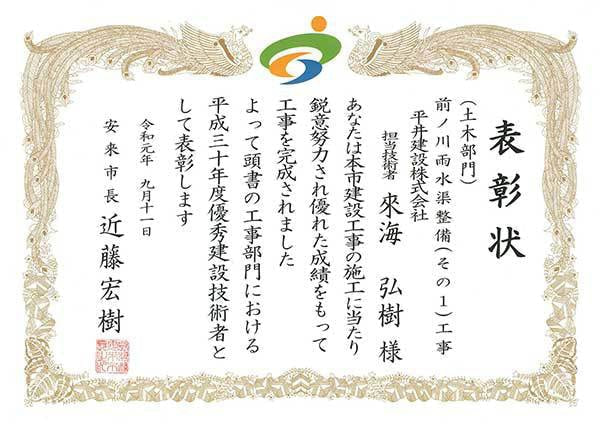 表彰状
(土木部門)
前ノ川雨水渠整備(その1)工事
平井建設株式会社
担当技術者 來海 弘樹 様
あなたは本市建設工事の施工に当たり
鋭意努力され優れた成績をもって
工事を完成されました
よって頭書の工事部門における
平成三十年度優秀建設技術者と
して表彰します
令和元年 九月十一日
安来市長 近藤宏樹